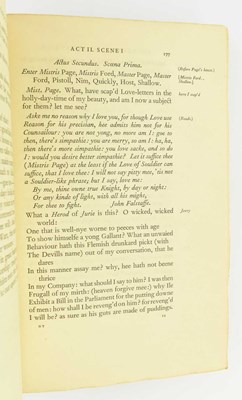 ACT II. SCENE I
177
Actus Secundus. Scena Prima.
Enter Mistris Page, Mistris Ford, Master Page, Master
Ford, Pistoll, Nim, Quickly, Host, Shallow.
Mist. Page. What, have scap'd Love-letters in the
holly-day-time of my beauty, and am I now a subject
for them? let me see?
Aske me no reason why I love you, for though Love use
Reason for his precisian, hee admits him not for his
Counsailour: you are not yong, no more am I: goe to
then, there's simpathie: you are merry, so am I: ha, ha,
then there's more simpathie: you love sacke, and so do
I: would you desire better simpathie? Let it suffice thee
(Mistris Page) at the least if the Love of Souldier can
suffice, that I love thee: I will not say pitty mee, 'tis not
a Souldier-like phrase; but I say, love me:
By me, thine owne true Knight, by day or night:
Or any kinde of light, with all his might,
For thee to fight. John Falstaffe.
What a Herod of Jurie is this? O wicked, wicked
world:
One that is well-nye worne to peeces with age
To show himselfe a yong Gallant? What an unwaied
Behaviour hath this Flemish drunkard pickt (with
The Devills name) out of my conversation, that he
dares
In this manner assay me? why, hee hath not beene
thrice
In my Company: what should I say to him? I was then
Frugall of my mirth: (heaven forgive mee:) why Ile
Exhibit a Bill in the Parliament for the putting downe
of men: how shall I be reveng'd on him? for reveng'd
I will be? as sure as his guts are made of puddings.
(Before Page's house)
have I scap'd
(Reads)
Jewry